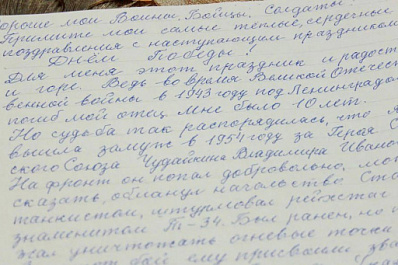 орогие мои Воины, Бойцы, Солдаты!
Примите мои самые теплые, сердечные
поздравления с наступающим праздником
Днём Победы!
Для меня этот праздник и радост
и горе. Ведь во время Великой Отечест
венной войны в 1943 году под Ленинградом
погиб мой отец. Мне было 10 лет.
Но судьба так распорядилась, что я
вышла замуж в 1954 году за Героя С
ского Союза Чудайкина Владимира Ивано
На фронт он попал добровольно, мож
сказать, обманул начальство. Ста
танкистом, штурмовал рейхстаг
знаменитом Т-34. Был ранен, но
жал уничтожать огневые точки
бой ему присвоили зва